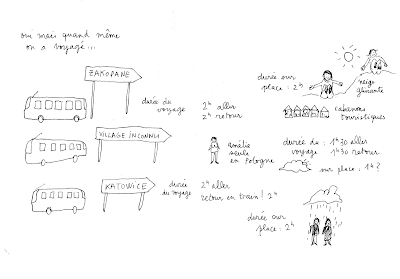 oui mais quand même
on a voyagé...
ZAKOPANE
durée du
voyage
2h aller
2h retour
durée sur
place : 2h
neige
glissante
cabanons
touristiques
VILLAGE INCONNU
amélie
seule
en Pologne
durée du : 1h30 aller
voyage 1h30 retour
sur place : 1h ?
KATOWICE
durée
du voyage
2h aller
retour en train ! 2h
durée sur
place : 2h